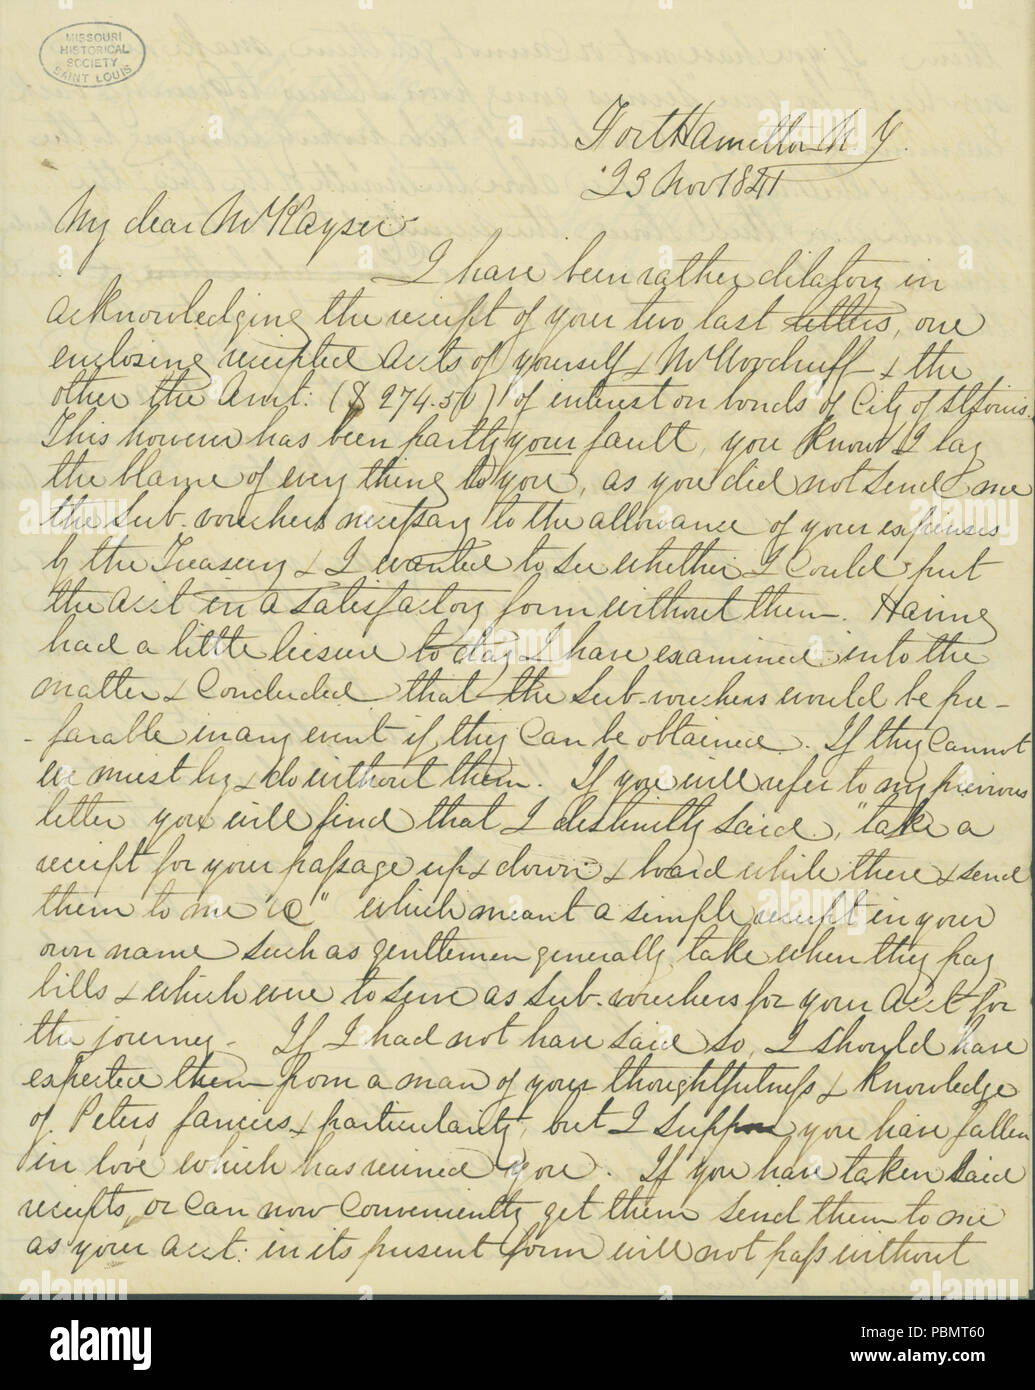 MISSOURI
HISTORICAL
SOCIETY
SAINT LOUIS
Fort Hamilton N. Y.
23 Nov 1841
My dear Mr Kayser
I have been rather dilatory in
acknowledging the receipt of your two last letters, one
enclosing receipted accts of yourself & Mr Woodruff & the
other the Amt: ($274.50) of interest on bonds of City of St Louis.
This however has been partly your fault, you know I lay
the blame of every thing to you, as you did not send me
the sub-vouchers necessary to the allowance of your expenses
by the Treasury & I wanted to see whether I could put
the acct in a satisfactory form without them. Having
had a little leisure to day I have examined into the
matter & concluded that the sub-vouchers would be pre-
-farable in any event if they can be obtained. If they cannot
we must try & do without them. If you will refer to my previous
letter you will find that I distinctly said, "take a
receipt for your passage up & down & board while there & send
them to me &c" which meant a simple receipt in your
own name such as gentlemen generally take when they pay
bills & which were to serve as sub-vouchers for your acct for
the journey- If I had not have said so, I should have
expected them from a man of your thoughtfulness & knowledge
of Peters fancies & particularity, but I suppose you have fallen
in love which has ruined you. If you have taken said
receipts, or can now conveniently get them send them to me
as your acct: in its present form will not pass without
alamy
alamy stock photo
PBMT60
www.alamy.com